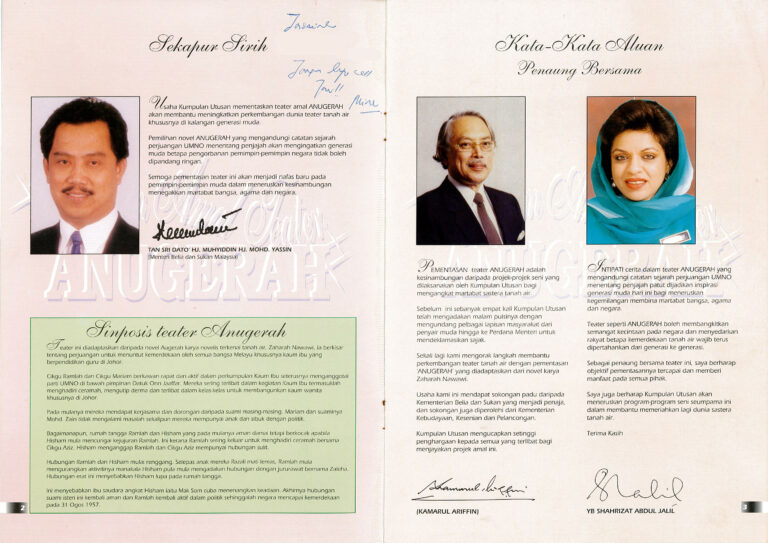 Sekapur Sirih
Jasmine
Usaha Kumpulan Utusan mementaskan teater amal ANUGERAH
akan membantu meningkatkan perkembangan dunia teater tanah air
khususnya di kalangan generasi muda.
Pemilihan novel ANUGERAH yang mengandungi catatan sejarah
perjuangan UMNO menentang penjajah akan mengingatkan generasi
muda betapa pengorbanan pemimpin-pemimpin negara tidak boleh
dipandang ringan.
Semoga pementasan teater ini akan menjadi nafas baru pada
pemimpin-pemimpin muda dalam meneruskan kesinambungan
menegakkan martabat bangsa, agama dan negara.
TAN SRI DATO' HJ. MUHYIDDIN HJ. MOHD. YASSIN
(Menteri Belia dan Sukan Malaysia)
ANUGERAH
Sinposis teater Anugerah
Teater ini diadaptasikan daripada novel Augerah karya novelis terkenal tanah air, Zaharah Nawawi. Ia berkisar
tentang perjuangan untuk menuntut kemerdekaan oleh semua bangsa Melayu khususnya kaum ibu yang
berpendidikan guru di Johor.
Cikgu Ramlah dan Cikgu Mariam berkawan rapat dan aktif dalam perkumpulan Kaum Ibu seterusnya menganggotai
parti UMNO di bawah pimpinan Datuk Onn Jaaffar. Mereka sering terlibat dalam kegiatan Kaum Ibu termasuklah
menghadiri ceramah, mengutip derma dan terlibat dalam kelas-kelas untuk membangunkan kaum wanita
khususnya di Johor.
Pada mulanya mereka mendapat kerjasama dan dorongan daripada suami masing-masing. Mariam dan suaminya
Mohd. Zain tidak mengalami masalah sekalipun mereka mempunyai anak dan sibuk dengan politik.
Bagaimanapun, rumah tangga Ramlah dan Hisham yang pada mulanya aman damai tetapi berkocak apabila
Hisham mula mencurigai kejujuran Ramlah. Ini kerana Ramlah sering keluar untuk menghadiri ceramah bersama
Cikgu Aziz. Hisham menganggap Ramlah dan Cikgu Aziz mempunyai hubungan sulit.
Hubungan Ramlah dan Hisham mula renggang. Selepas anak mereka Razak mati lemas, Ramlah mula
mengurangkan aktivitinya manakala Hisham pula mula mengadakan hubungan dengan jururawat bernama Zaleha.
Hubungan erat ini menyebabkan Hisham lupa pada rumah tangga.
Ini menyebabkan ibu saudara angkat Hisham iaitu Mak Som cuba menenangkan keadaan. Akhirnya hubungan
suami isteri ini kembali aman dan Ramlah kembali aktif dalam politik sehinggalah negara mencapai kemerdekaan
pada 31 Ogos 1957.
2
Kata-Kata Aluan
Penaung Bersama
PEMENTASAN teater ANUGERAH adalah
kesinambungan daripada projek-projek seni yang
dilaksanakan oleh Kumpulan Utusan bagi
mengangkat martabat sastera tanah air.
Sebelum ini sebanyak empat kali Kumpulan Utusan
telah mengadakan malam puisinya dengan
mengundang pelbagai lapisan masyarakat dari
penyair muda hingga ke Perdana Menteri untuk
mendeklamasikan sajak.
Sekali lagi kami mengorak langkah membantu
perkembangan teater tanah air dengan pementasan
'ANUGERAH' yang diadaptasikan dari novel karya
Zaharah Nawawi.
Usaha kami ini mendapat sokongan padu daripada
Kementerian Belia dan Sukan yang menjadi peneraju,
dan sokongan juga diperolehi dari Kementerian
Kebudayaan, Kesenian dan Pelancongan.
Kumpulan Utusan mengucapkan setinggi
penghargaan kepada semua yang terlibat bagi
menjayakan projek amal ini.
(KAMARUL ARIFFIN)
INTIPATI cerita dalam teater ANUGERAH yang
mengandungi catatan sejarah perjuangan UMNO
menentang penjajah patut dijadikan inspirasi
generasi muda hari ini bagi meneruskan
kegemilangan membina martabat bangsa, agama
dan negara.
Teater seperti ANUGERAH boleh membangkitkan
semangat kecintaan pada negara dan menyedarkan
rakyat betapa kemerdekaan tanah air wajib terus
dipertahankan dari generasi ke generasi.
Sebagai penaung bersama teater ini, saya berharap
objektif pementasannya tercapai dan memberi
manfaat pada semua pihak.
Saya juga berharap Kumpulan Utusan akan
meneruskan program-program seni seumpama ini
dalam membantu memeriahkan lagi dunia sastera
tanah air.
Terima Kasih
YB SHAHRIZAT ABDUL JALIL
3